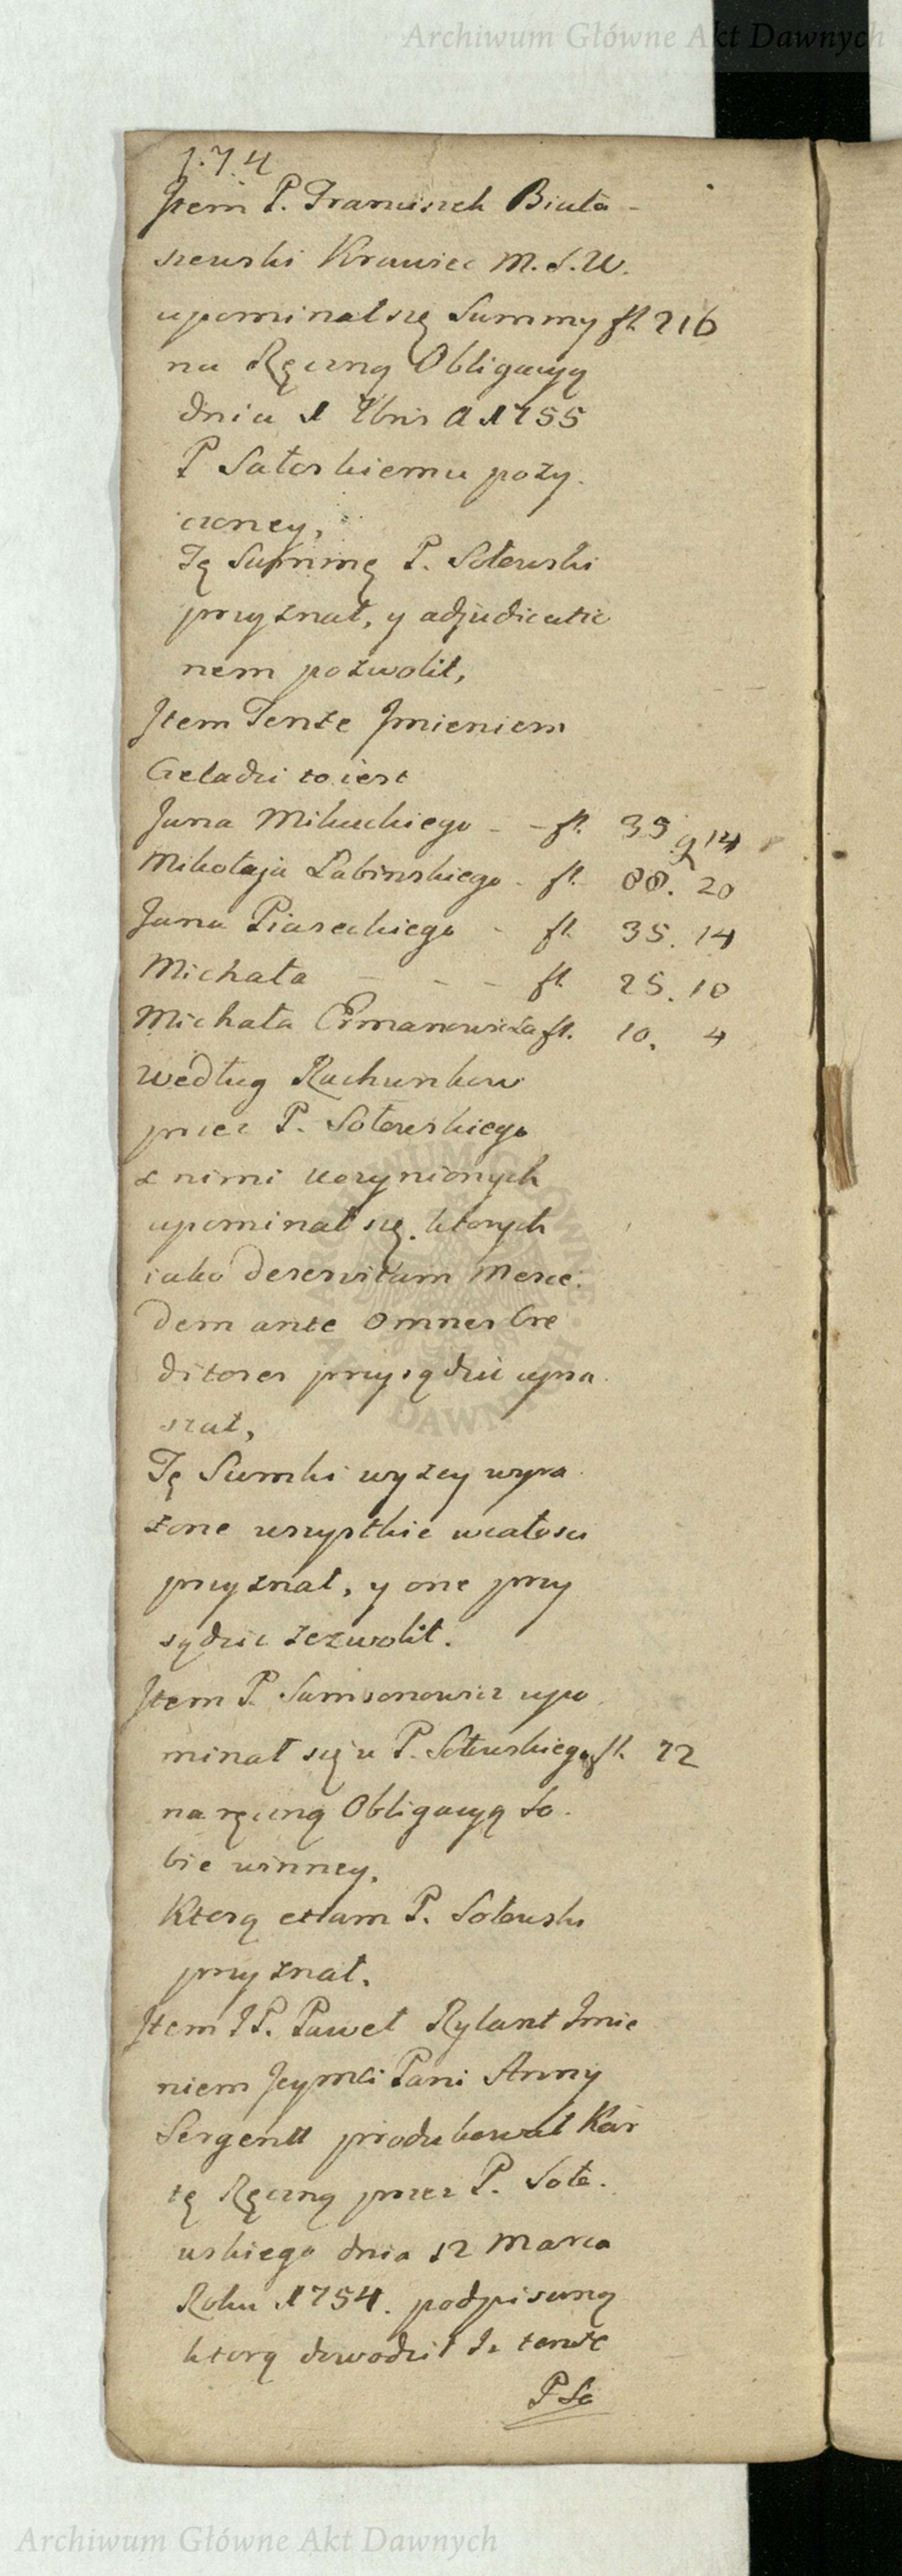 Archiwum Główne Akt Dawnych
174
Jtem P. Franciszek Biała-
szewski Krawiec M. S. W.
upominał się Summy fl 216
na Ręczną Obligacyą
dnia 1 Xbris A 1755
P Sałoskiemu poży.
czoney,
Tę Summę P. Sołowski
przyznał, y adjudicatio
nem pozwolił,
Jtem Tenże Jmieniem
Czeladzi to iest
Jana Mikuckiego - - fl. 35 g 14
Mikołaja Labinskiego - fl. 88. 20
Jana Piaseckiego - fl. 35. 14
Michała - - - fl. 25. 10
Michała Ermanowicza fl. 10. 4
według Rachunkow
przez P. Sołowskiego
z nimi uczynionych
upominał się. ktorych
iako deservitam Merce.
dem ante omnes Cre
ditores przysądzić upra.
szał,
Tę Sumki wyzey wyra.
żone wszystkie wcałosci
przyznał, y one przy
sądzic zezwolił.
Jtem P. Samsonowicz upo.
minał się u P. Sołowskiego fl. 72
na ręczną Obligacyą So.
bie winney.
Ktorą etiam P. Sołowski
przyznał.
Jtem J P. Paweł Rylant Jmie
niem Jeymci Pani Anny
Sergentt produkował Kar
tę Ręczną przez P. Soło.
wskiego dnia 12 Marca
Roku 1754. podpisaną
ktorą dowodził Iż tenże
P So
Archiwum Główne Akt Dawnych